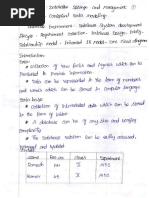 Database Design and Management ①
Conceptual Data Modelling
Database Environment - Database System development
lifecycle - Requirements collection - Database Design - Entity-
Relationship model - Enhanced ER model - UML class diagram
Introduction
Data:
* Collection of raw facts and figures which can be
Processed to Produce information.
* Data can be represented in the form of numbers
and words which can be stored in Computer's language
* Data can be represented in the form of tables
Database:
* Collection of interrelated data which is stored in
the form of tables.
* The database relation can be easily accessed,
Managed and Updated.
Example
Name Roll no Class Department
Ramesh 101 II AIDS
Kumar II AIDS